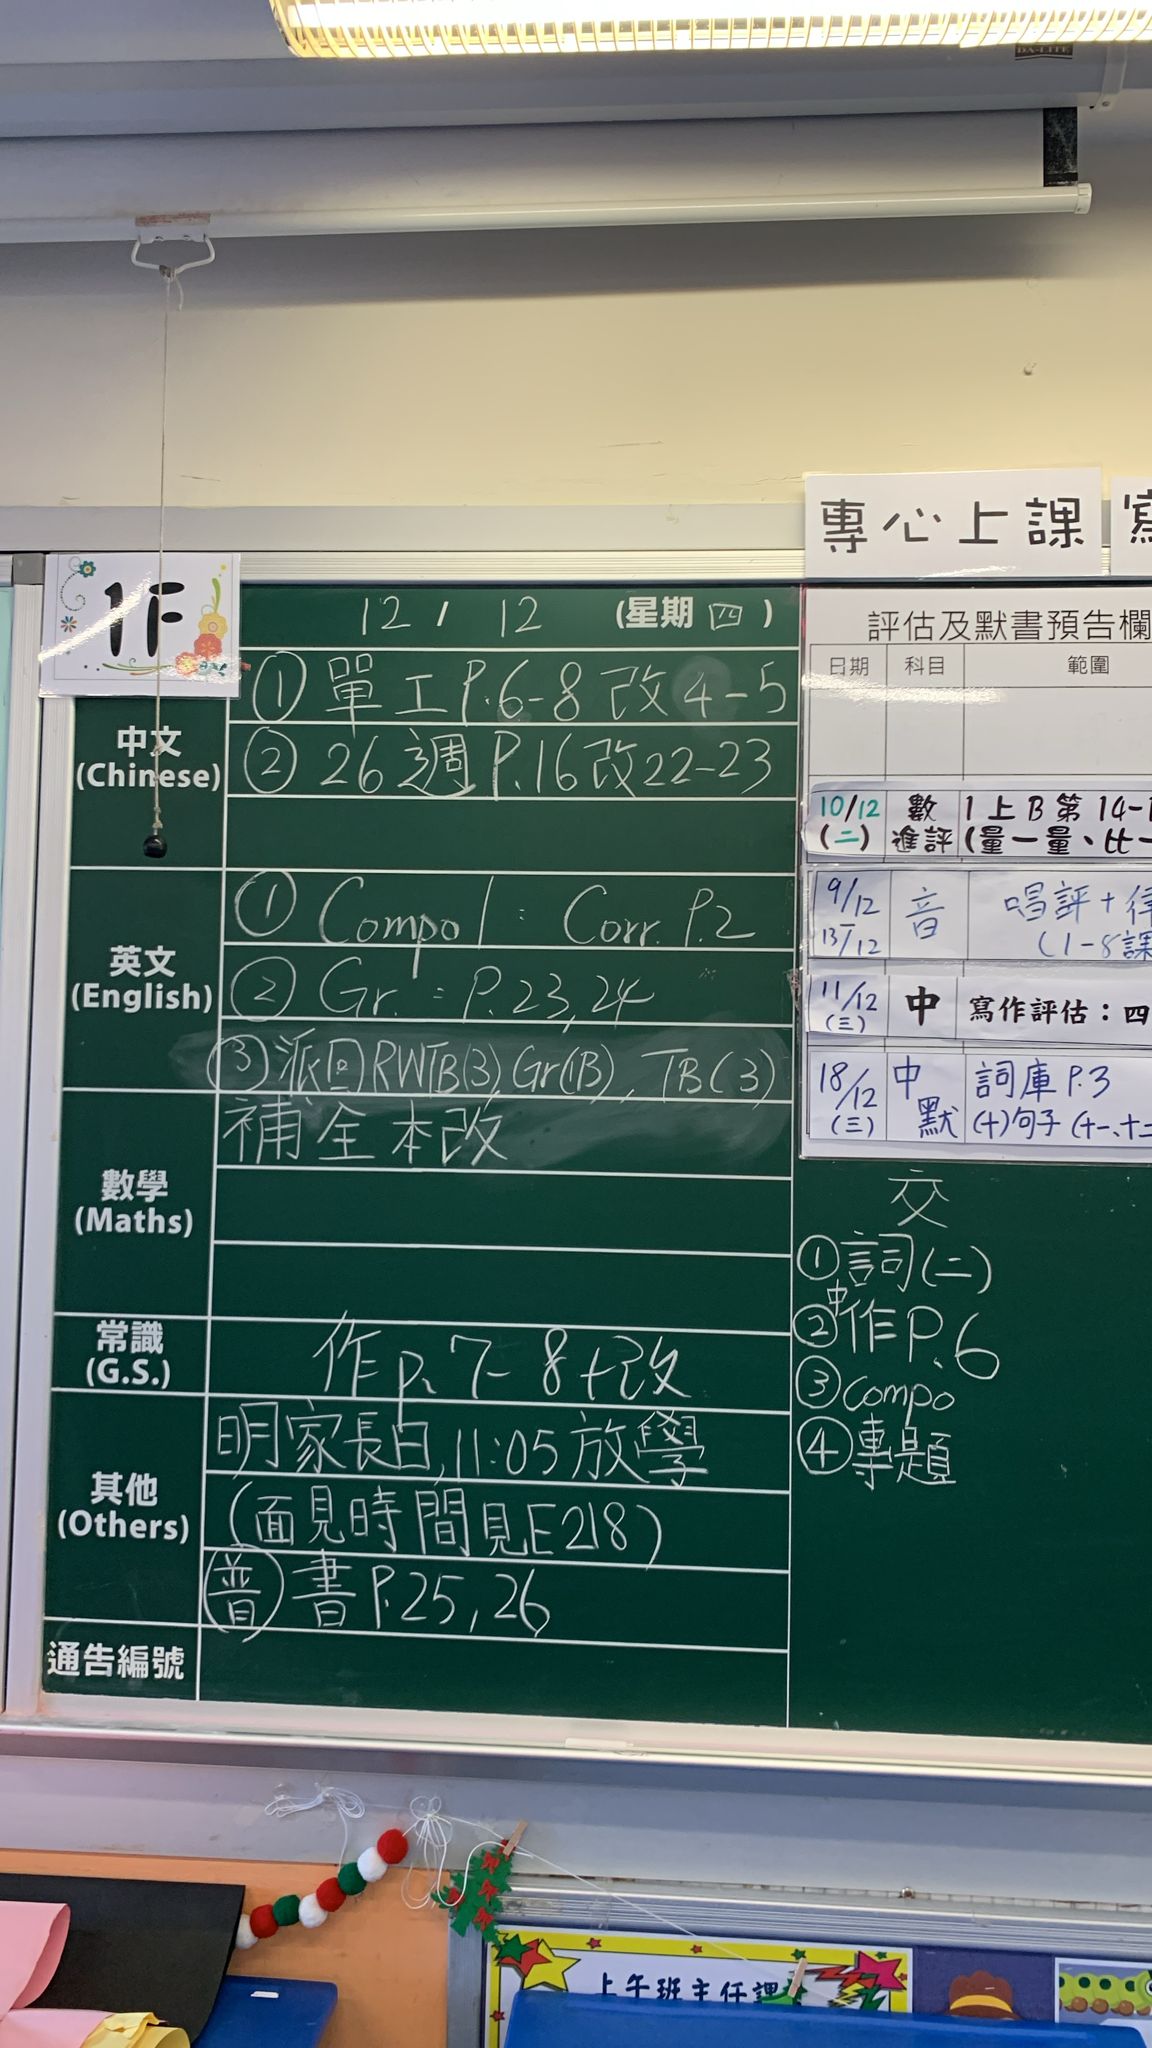 DA-LITE
專心上課
1F
12 / 12 (星期四)
中文
(Chinese)
① 單工P.6-8 改4-5
② 26週P.16改22-23
英文
(English)
① Compo 1: Corr. P.2
② Gr. : P.23,24
③派回RWTB(3), Gr(1B), TB(3)
數學
(Maths)
補全本改
常識
(G.S.)
作P.7-8+改
其他
(Others)
明家長日,11:05放學
(面見時間見E218)
普 書P.25,26
通告編號
評估及默書預告欄
日期 科目 範圍
10/12 (二) 數進評 1上B第14-
(量一量、比一
9/12 13/12 音 唱評+
(1-8課
11/12 (三) 中 寫作評估：四
18/12 (三) 中默 詞庫P.3
(十)句子(十一、十二
交
①詞(二)
②中作P.6
③compo
④專題
上午班主任課